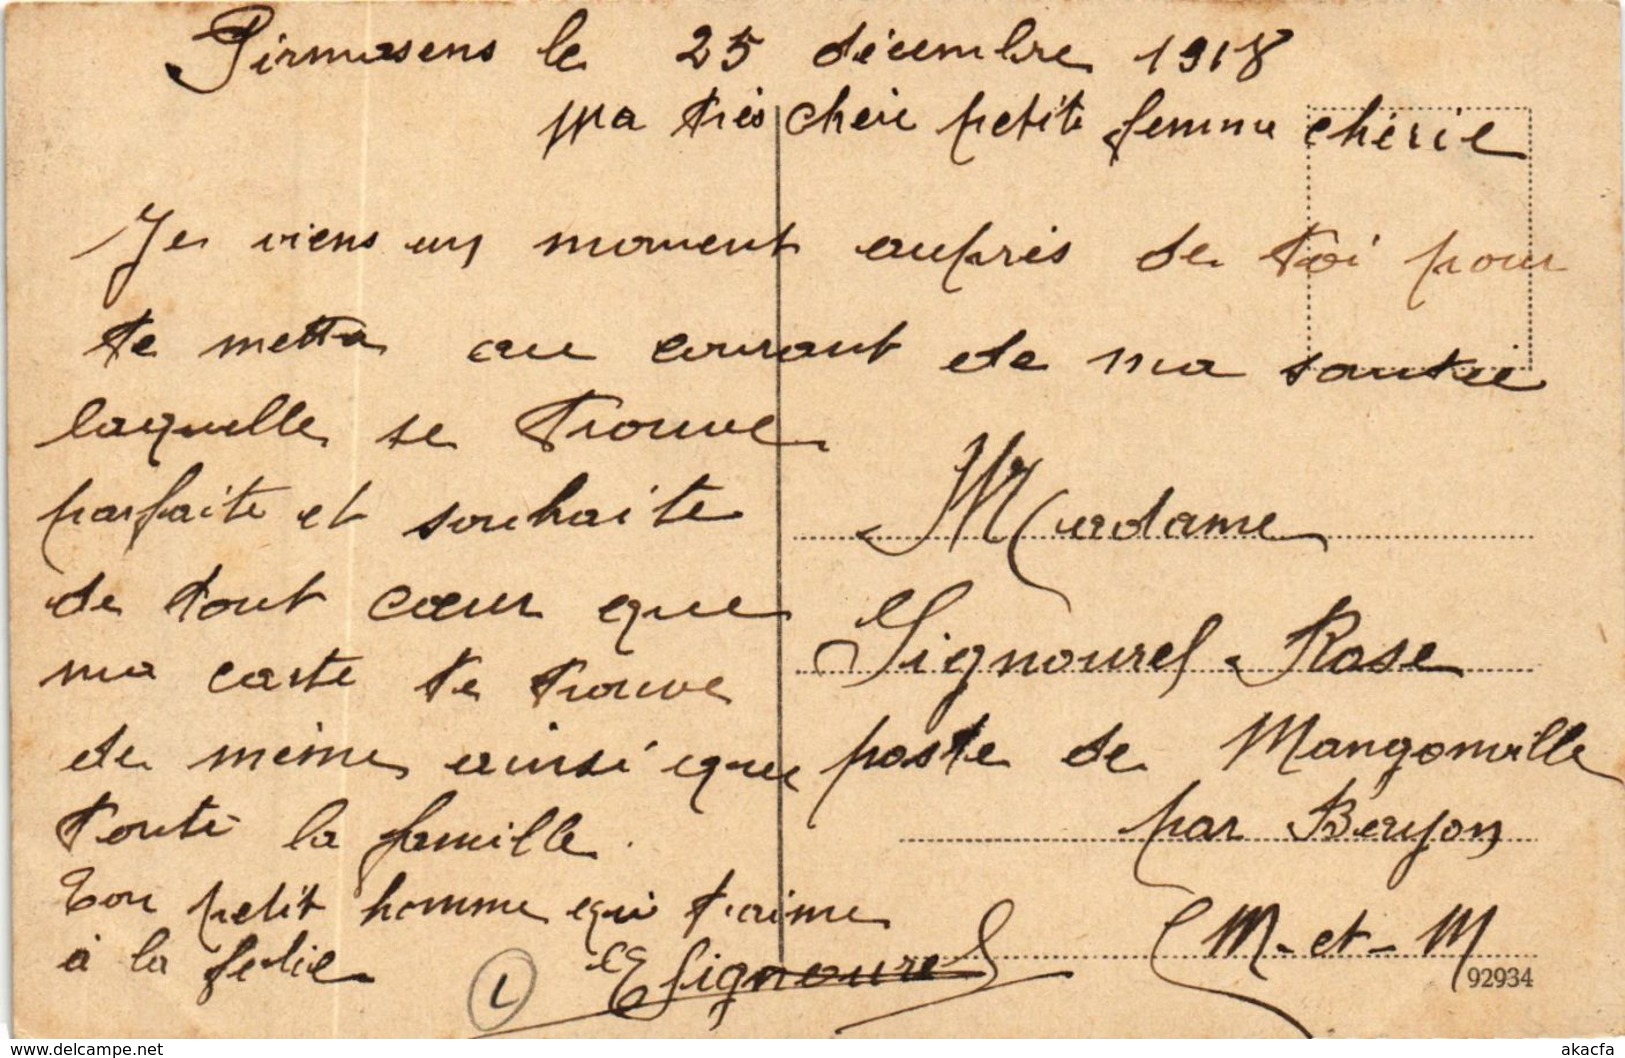 Pirmasens le 25 décembre 1918
Ma très chère petite femme chérie
Je viens un moment auprès de toi pour
te mettre au courant de ma santée
laquelle se trouve
parfaite et souhaite
de tout cœur que
ma carte te trouve
de même ainsi que
toute la famille.
Ton petit homme qui t'aime
à la folie
E Signourel
L
Madame
Signourel Rose
poste de Mangonville
par Bayon
(M-et-M
92934
www.delcampe.net
akacfa